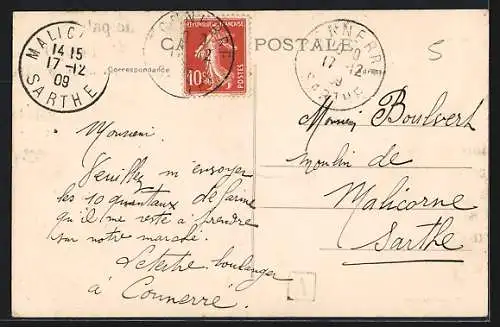 MALICO
14 15
17-12
09
SARTHE
CONNERRE
CARTE POSTALE
Correspondance
REPUBLIQUE FRANÇAISE
10c
POSTES
CONNERRE
17-12
09
SARTHE
5
Monsieur
Veuillez m'envoyer
les 10 quintaux de farine
qu'il me reste à prendre
sur notre marché.
boulanger
à Connerré.
Monsieur Boulvert
moulin de
Malicorne
Sarthe